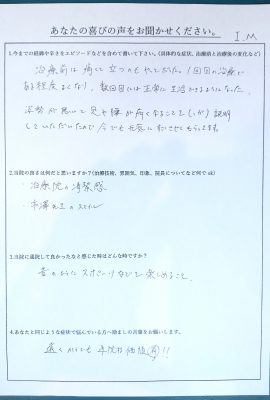 あなたの喜びの声をお聞かせください。
I.M
1.今までの経緯や辛さをエピソードなどを含めて書いて下さい。(具体的な症状、治療前と治療後の変化など)
治療前は痛くて立つのもやっとだった。1回目の治療で
ある程度よくなり、数回目には正常に生活できるようになった。
姿勢が悪いと足や腰が痛くなること(いみ)説明
していただいたので今でも元気にすごさせてもらってます。
2.当院の良さは何だと思いますか?(治療技術、雰囲気、印象、院長についてなど何でも ok)
・治療院の清潔感
・先生のスマイル
3.当院に通院して良かったなと感じた時はどんな時ですか?
昔のようにスポーツなどで楽しめること。
4.あなたと同じような症状で悩んでいる方へ励ましの言葉をお願いします。
遠くからでも来院する価値(有)!!